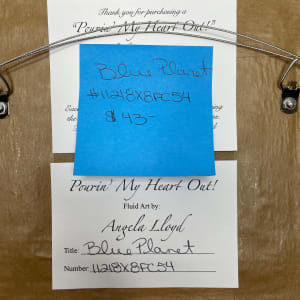 Thank you for purchasing a
"Pourin' My Heart Out!"
Blue Planet
#11218X8FC54
$43-
Pourin' My Heart Out!
Fluid Art by:
Angela Lloyd
Title: Blue Planet
Number: 11218X8FC54